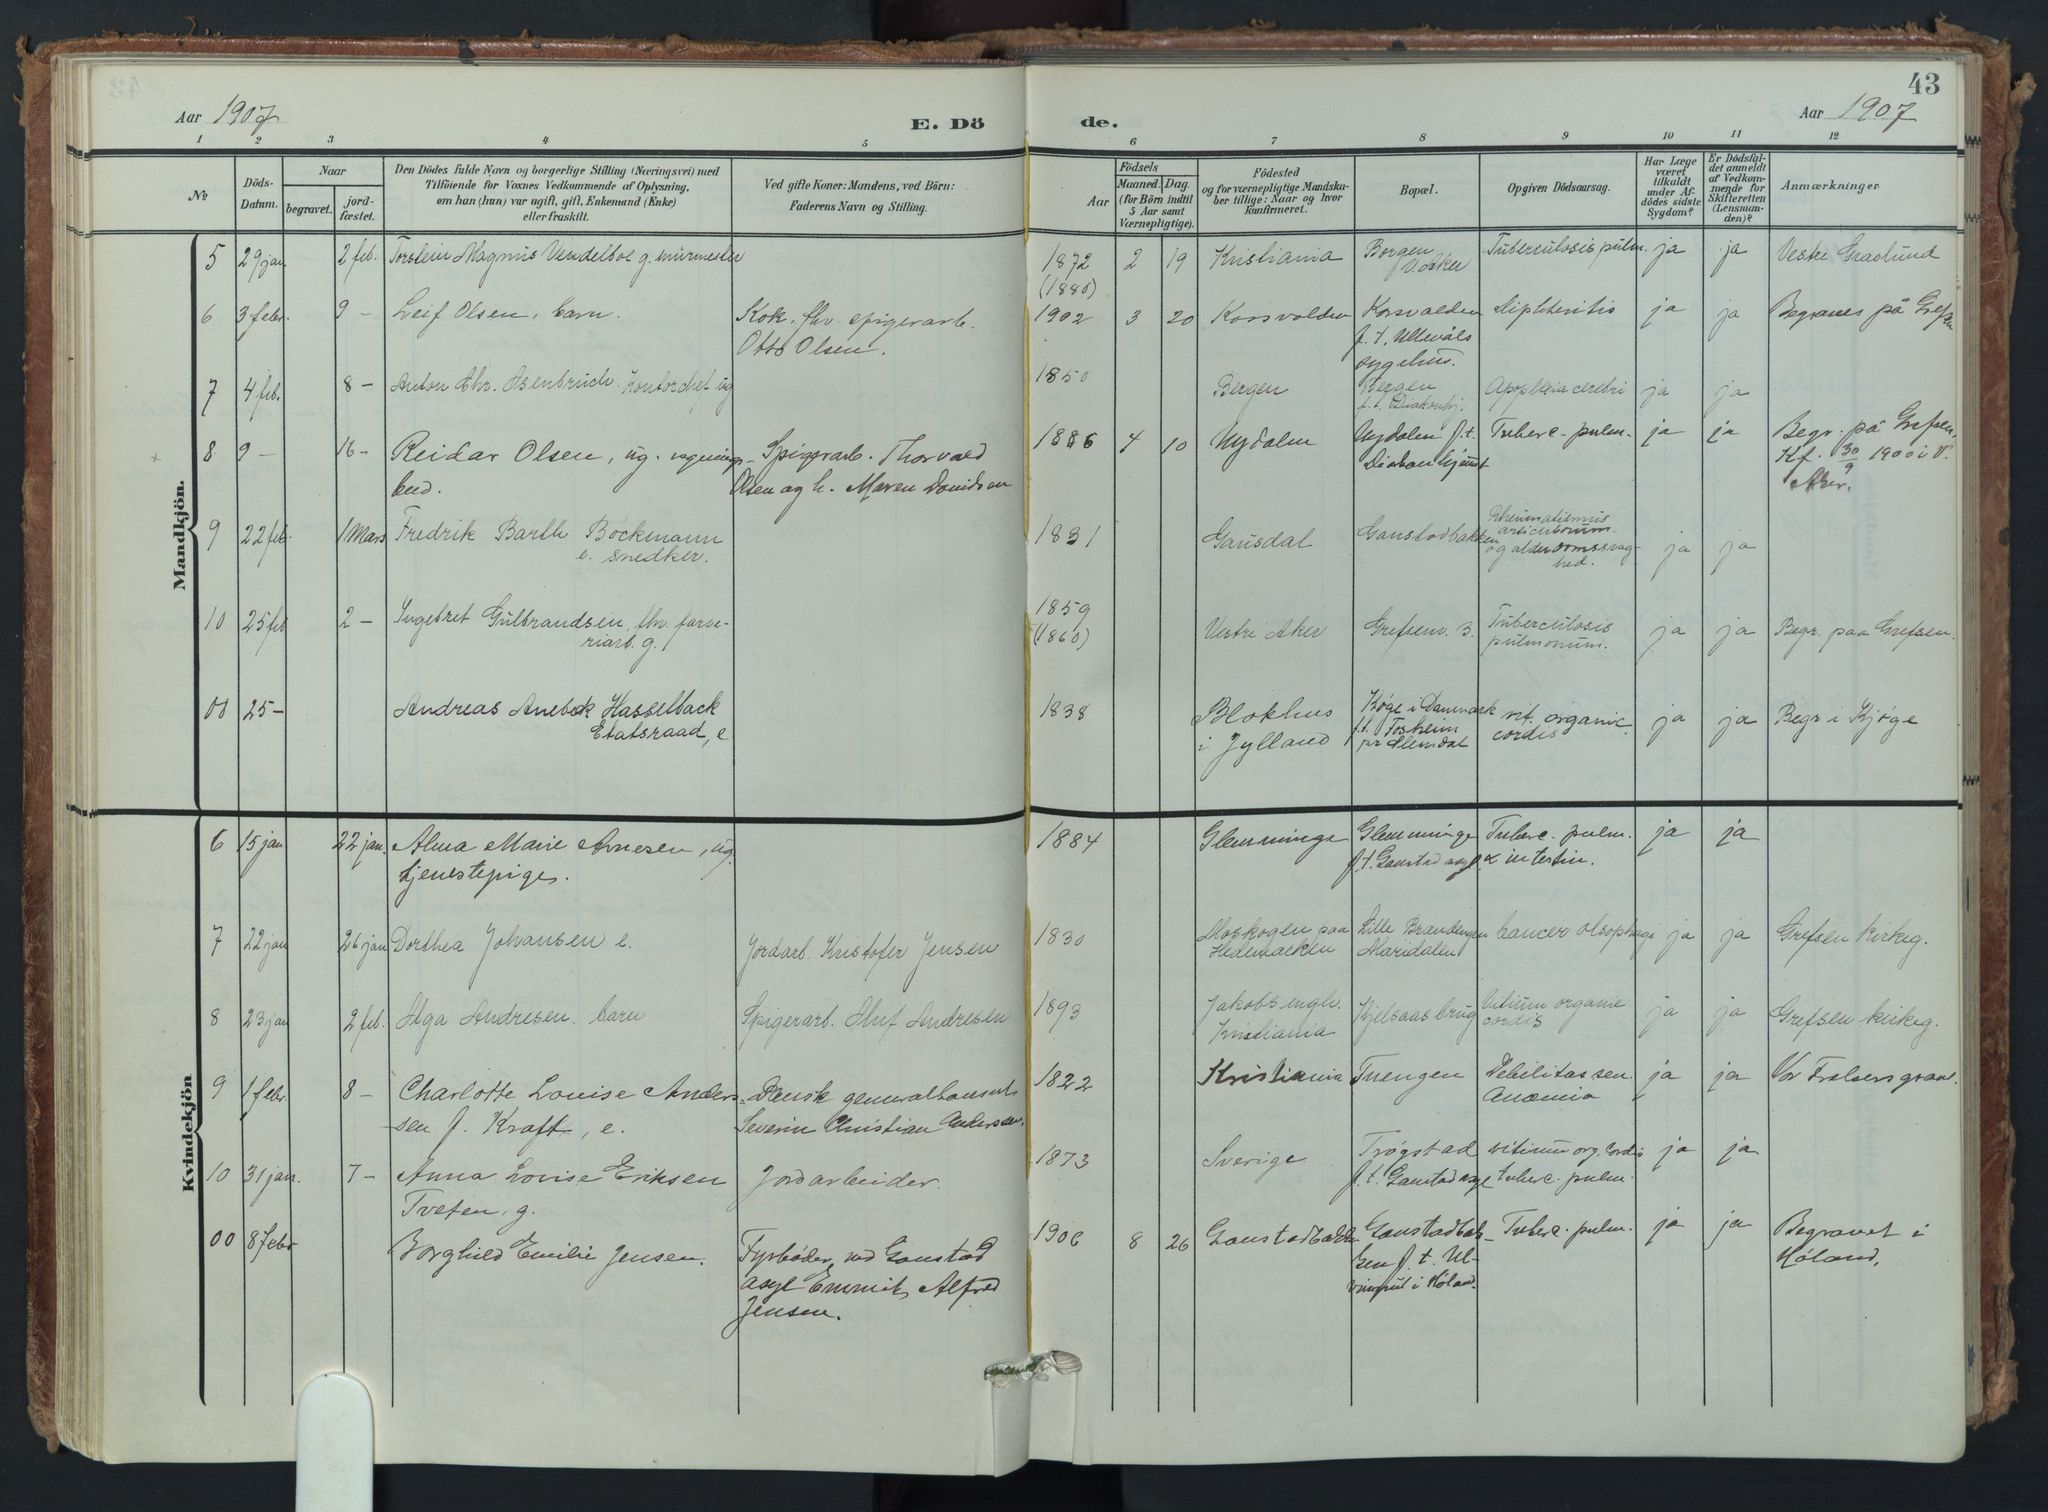 43
Aar 1907
E. Dö
de.
Aar 1907
1 2 3 4 5 6 7 8 9 10 11 12
No.
Döds-
Datum.
Naar
begravet.
jord-
fæstet.
Den Dödes fulde Navn og borgerlige Stilling (Næringsvei) med
Tilföiende for Voxnes Vedkommende af Oplysning,
om han (hun) var ugift, gift, Enkemand (Enke)
eller fraskilt.
Ved gifte Koner: Mandens, ved Börn:
Faderens Navn og Stilling.
Födsels
Aar
Maaned. Dag.
(for Börn indtil
5 Aar samt
Værnepligtige).
Födested
og for værnepligtige Mandska-
ber tillige: Naar og hvor
konfirmeret.
Bopæl.
Opgiven Dödsaarsag.
Har Læge
været
tilkaldt
under Af-
dödes sidste
Sygdom?
Er Dödsfal-
det anmeldt
af Vedkom-
mende for
Skifteretten
(Lensman-
den)?
Anmærkninger
Mandkjön.
5 29 jan 2 feb. Torstein Magnus Vendelboe g. murmester
1872 2 19 Kristiania Borgen Tuberculosis pulm. ja ja Vestre Gravlund
(1880) V. Aker
6 3 febr. 9 - Leif Olsen, barn. Kok. fhv. spigerarb.
Otto Olsen.
1902 3 20 Korsvolden Korsvolden Diphteritis ja ja Begraves på Grefsen
f. t. Ullevåls
sygehus.
7 4 feb. 8 - Anton Chr. Isenbruch. Kontorchef ug
1850 Bergen Bergen Apoplexia cerebri ja ja
f. t. Diakonhj.
8 9 - 16 - Reidar Olsen, ug. Spigerarb. Thorvald
bud. Olsen og h. Maren Davidsen
1886 4 10 Nydalen Nydalen f. t. Tuberc. pulm. ja ja Begr. på Grefsen.
Diakonhjemmet Kf. 30/9 1900 i V.
Aker.
9 22 feb. 1 Mars Fredrik Barth Böckmann
e. snedker.
1831 Gausdal Gaustadbakken Rheumatismus
articulorum
og alderdomssvag-
hed. ja ja
10 25 feb 2 - Ingebret Gulbrandsen, fhv. farve-
riarb. g.
1859 Vestre Aker Grefsenv. 3. Tuberculosis ja ja Begr. paa Grefsen.
(1860) pulmonum.
00 25 - Andreas Anebek Hasselback
Etatsraad, e
1838 Blokhus Køge i Danmark vit. organic. ja ja Begr. i Kjøge
i Jylland f. t. Foskeim cordis
pr Slemdal
Kvindekjön
6 15 jan 22 jan. Alma Marie Arnesen, ug.
tjenestepige.
1884 Glemminge Glemminge Tuberc. pulm. ja ja
f. t. Gaustad asyl & intestin.
7 22 jan 26 jan Dorthea Johansen e. Jordarb. Kristofer Jensen
1830 Moskogen paa Lille Brandengen cancer oesophagi ja ja Grefsen kirkeg.
Hedemarken Maridalen
8 23 jan 2 feb. Olga Andresen. barn Spigerarb. Oluf Andresen
1893 Jakobs mgh. Kjelsaas brug Vitium organic ja ja Grefsen kirkeg.
Kristiania cordis
9 1 febr. 8 - Charlotte Louise Anders- Dansk generalkonsul
sen f. Kraft, e. Severin Christian Andersen.
1822 Kristiania Tuengen Debilitas sen. ja ja Vor Frelsers grav.
Anæmia
10 31 jan. 7 - Anna Lovise Eriksen Jordarbeider.
Tveten, g.
1873 Sverige Trøgstad vitium org. cordis ja ja
f. t. Gaustad asyl tuberc. pulm.
00 8 febr Borghild Emilie Jensen. Fyrbøder ved Gaustad
asyl Emmit Alfred
Jensen.
1906 8 26 Gaustadbakken Gaustadbak- Tuberc. pulm. ja ja Begravet i
ken f. t. Ul- Høland.
i Høland.